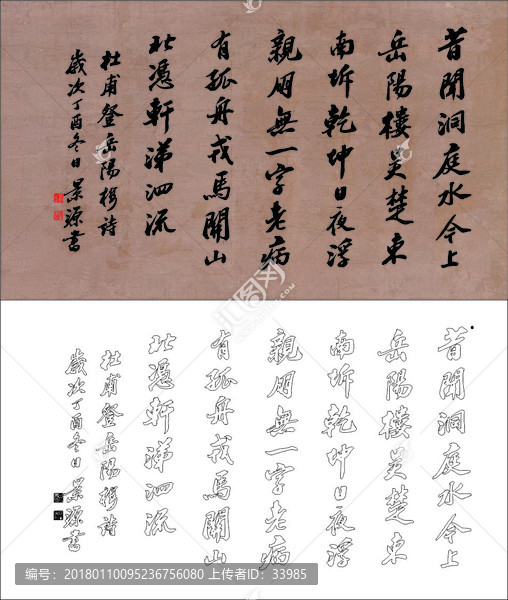 昔聞洞庭水今上
岳陽樓吳楚東
南坼乾坤日夜浮
親朋無一字老病
有孤舟戎馬關山
北憑軒涕泗流
杜甫登岳陽樓詩
歲次丁酉冬日景源書
昔聞洞庭水今上
岳陽樓吳楚東
南坼乾坤日夜浮
親朋無一字老病
有孤舟戎馬關山
北憑軒涕泗流
杜甫登岳陽樓詩
歲次丁酉冬日景源書
编号：20180110095236756080 上传者ID：33985